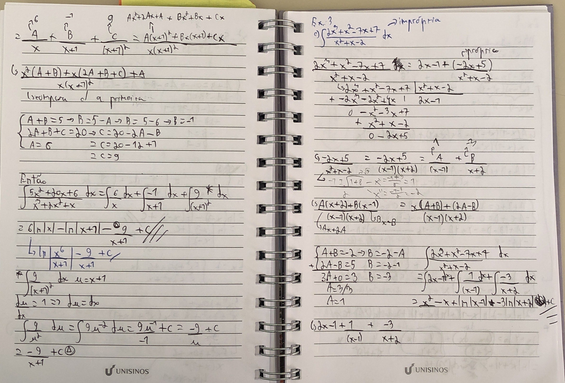 6 -1 9 Ax²+2Ax+A + Bx²+Bx + Cx
= A/x + B/(x+1) + C/(x+1)² = A(x+1)²+Bx(x+1)+Cx / x(x+1)²
x²(A+B)+x(2A+B+C)+A / x(x+1)²
A+B=5 → B=5-A → B=5-6 → B=-1
2A+B+C=20 → C=20-2A-B
A=6 = C=20-12+1
= C=9
Então
∫ 5x²+20x+6 / x³+2x²+x dx = ∫ 6/x dx + ∫ -1/(x+1) dx + ∫ 9/(x+1)² * dx
= 6ln|x|-ln|x+1| - 9/(x+1) + C
ln|x⁶/(x+1)| - 9/(x+1) + C
* ∫ 9/(x+1)² dx u=x+1
du/dx = 1 => du=dx
∫ 9/u² du = ∫ 9u⁻² du = 9u⁻¹/-1 + C = -9/u + C
= -9/(x+1) + C
UNISINOS
Ex. 3
∫ 2x³+x²-7x+7 / x²+x-2 dx → imprópria
própria
2x³+x²-7x+7 / x²+x-2 = 2x-1 + (-2x+5) / x²+x-2
2x³+x²-7x+7 | x²+x-2
+ -2x³-2x²+4x | 2x-1
0 -x²-3x+7
+ x²+x-2
0 -2x+5
-2x+5 / x²+x-2 = -2x+5 / (x-1)(x+2) = A/(x-1) + B/(x+2)
A(x+2)+B(x-1) / (x-1)(x+2) = x(A+B)+(2A-B) / (x-1)(x+2)
Ax+2A Bx-B
A+B=-2 → B=-2-A
2A-B=5 B=-2-1
3A+0=3 B=-3
A=3/3
A=1
∫ 2x³+x²-7x+7 / x²+x-2 dx
= ∫ 2x-1 + ∫ 1/(x-1) dx + ∫ -3/(x+2) dx
= x²-x+ln|x-1|-3ln|x+2|+C
2x-1 + 1/(x-1) + -3/(x+2)
UNISINOS